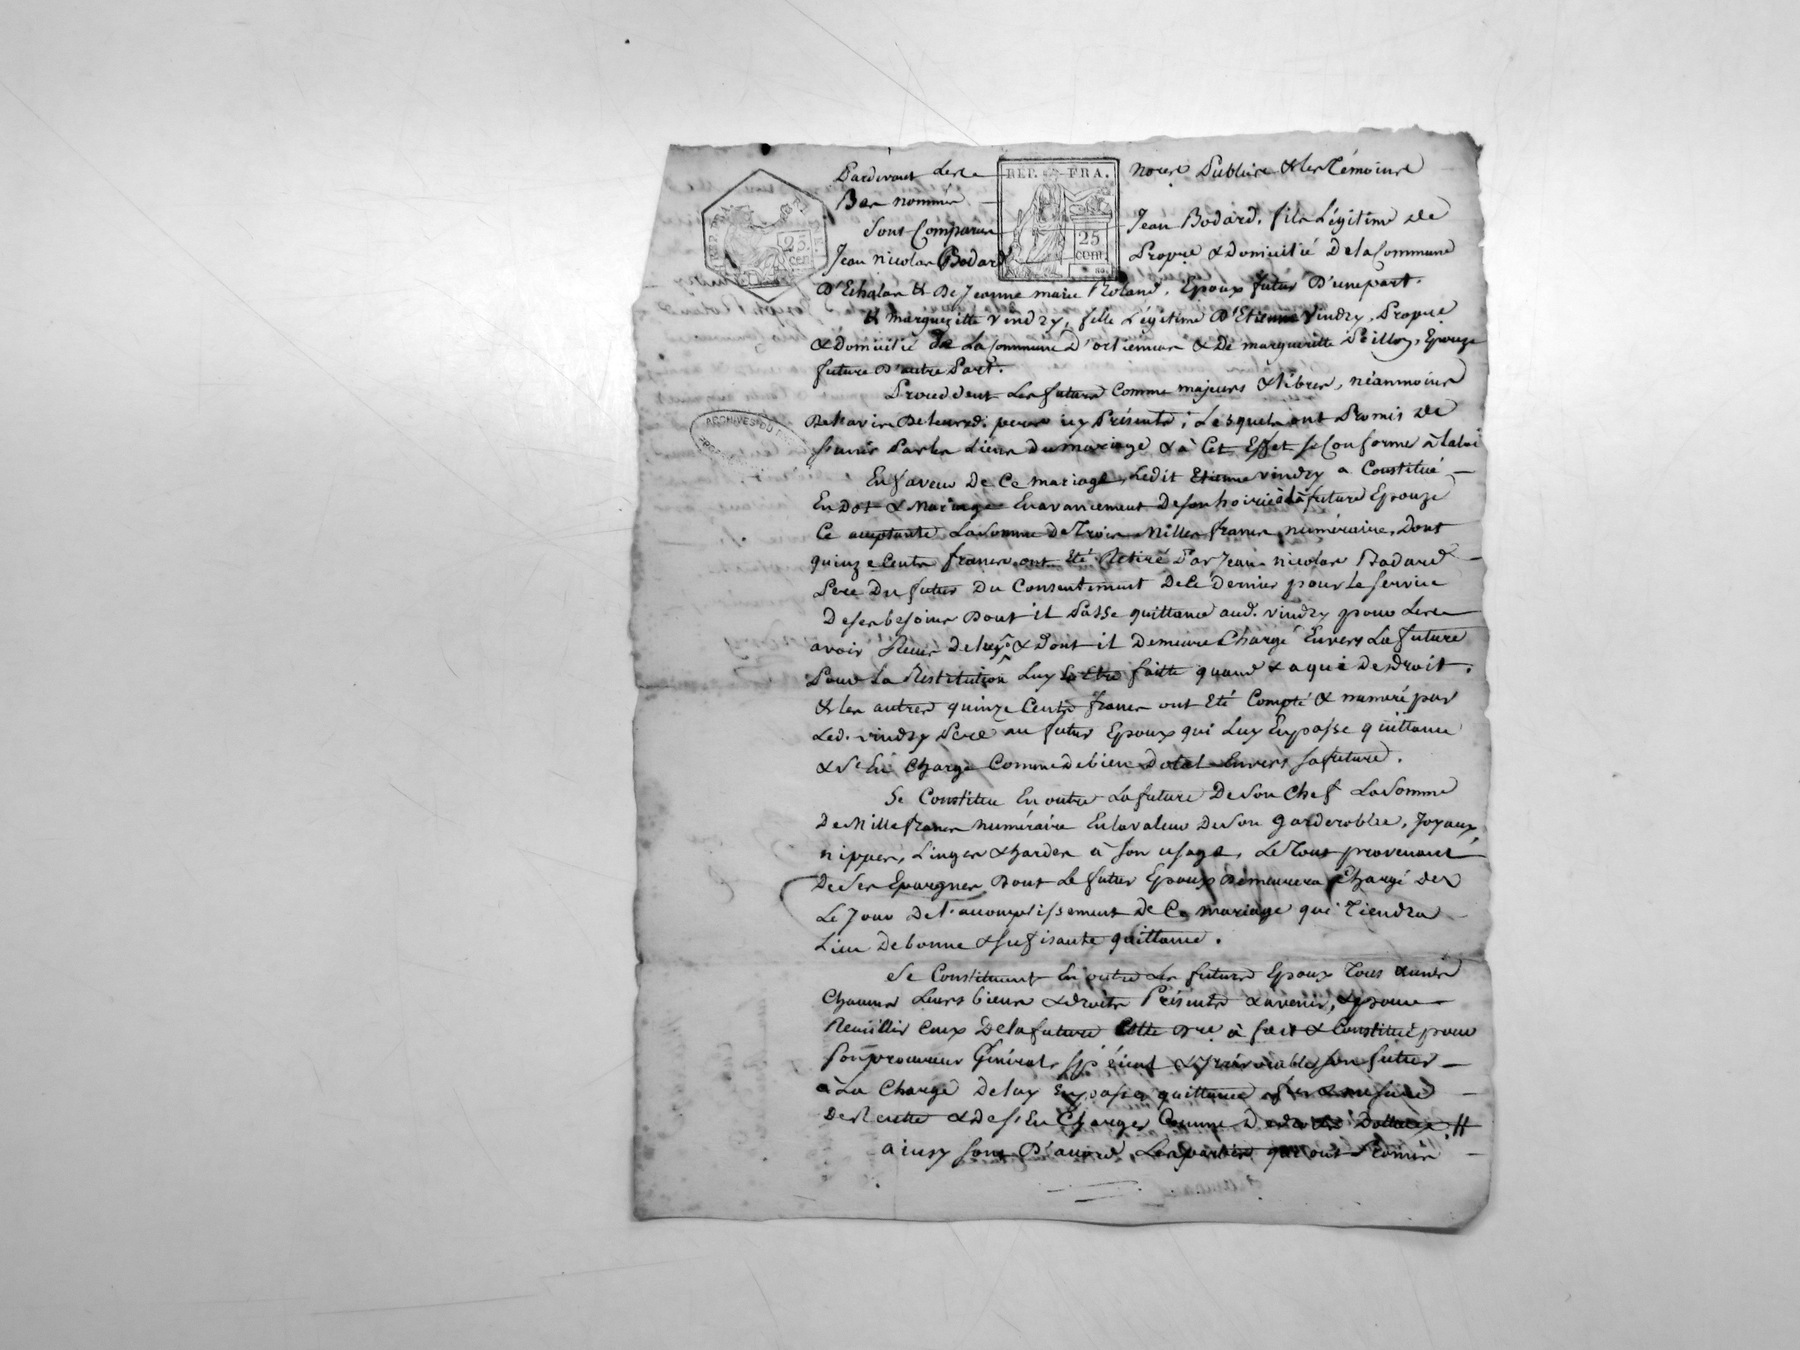 Pardevant les notres Publics & les Témoins
Bas nommés
REP. FRA.
25 cent
25 cen
Sont Comparus Jean Bodard, fils Légitime de
Jean nicolas Bodard Propre & domicilié De la Commune
D'Echalas & De Jeanne marie Roland, Epoux futur D'une part.
& Margueritte Vindry, fille Légitime D'Etienne Vindry, Propre
& Domicilié de La Commune D'
& De margueritte Epouze
future D'autre Part.
Procedent Les futurs Comme majeurs & libres, néanmoins
De l'avis De leurs d. peres icy Présents; Lesquels ont Promis de
s'unir Par les Liens du mariage & à Cet Effet se Conformer à la loi
En faveur De Ce mariage, Ledit Etienne vindry a Constitué
En Dot & Mariage En avancement De son hoirie à la future Epouze
Ce acceptante La Somme De Trois Milles francs numéraire, Dont
quinze Cents francs ont Eté Retiré Par Jean nicolas Bodard
Pere Du futur Du Consentement De Ce Dernier pour le Service
De ses besoins Dont il Passe quittance aud. vindry pour Les
avoir Reçus De luy & Dont il Demeure Chargé Envers La future
Pour La Restitution Luy En Etre faitte quand & a qui De droit.
& les autres quinze Cents francs ont Eté Compté & numéré par
Led. vindry Pere au futur Epoux qui Luy En passe quittance
& s'En Charge Comme de bien Dotal Envers sa future.
Se Constitue En outre La future De Son Chef La Somme
De Mille francs numéraire En la valeur De Son garderobbe, Joyaux,
nippes, Linges & hardes à Son usage, Le Tout provenant
De Ses Epargnes Dont Le futur Epoux Demeurera Chargé Dez
Le Jour De l'accomplissement De Ce mariage qui Tiendra
Lieu De bonne & sufisante quittance.
Se Constituent En outre Les futurs Epoux Tous & uns
Chacuns Leurs biens & droits Présents & avenir, & pour
Recüillir Ceux De la future Cette à fait & Constitué pour
Son procureur Général, Spécial & irrévocable Son futur
à La Charge De luy En passer quittance
De Recette & De s'En Charger Comme De Dottaux, //
ainsy Sont D'accord Les parties qui ont Promis
ARCHIVES DU